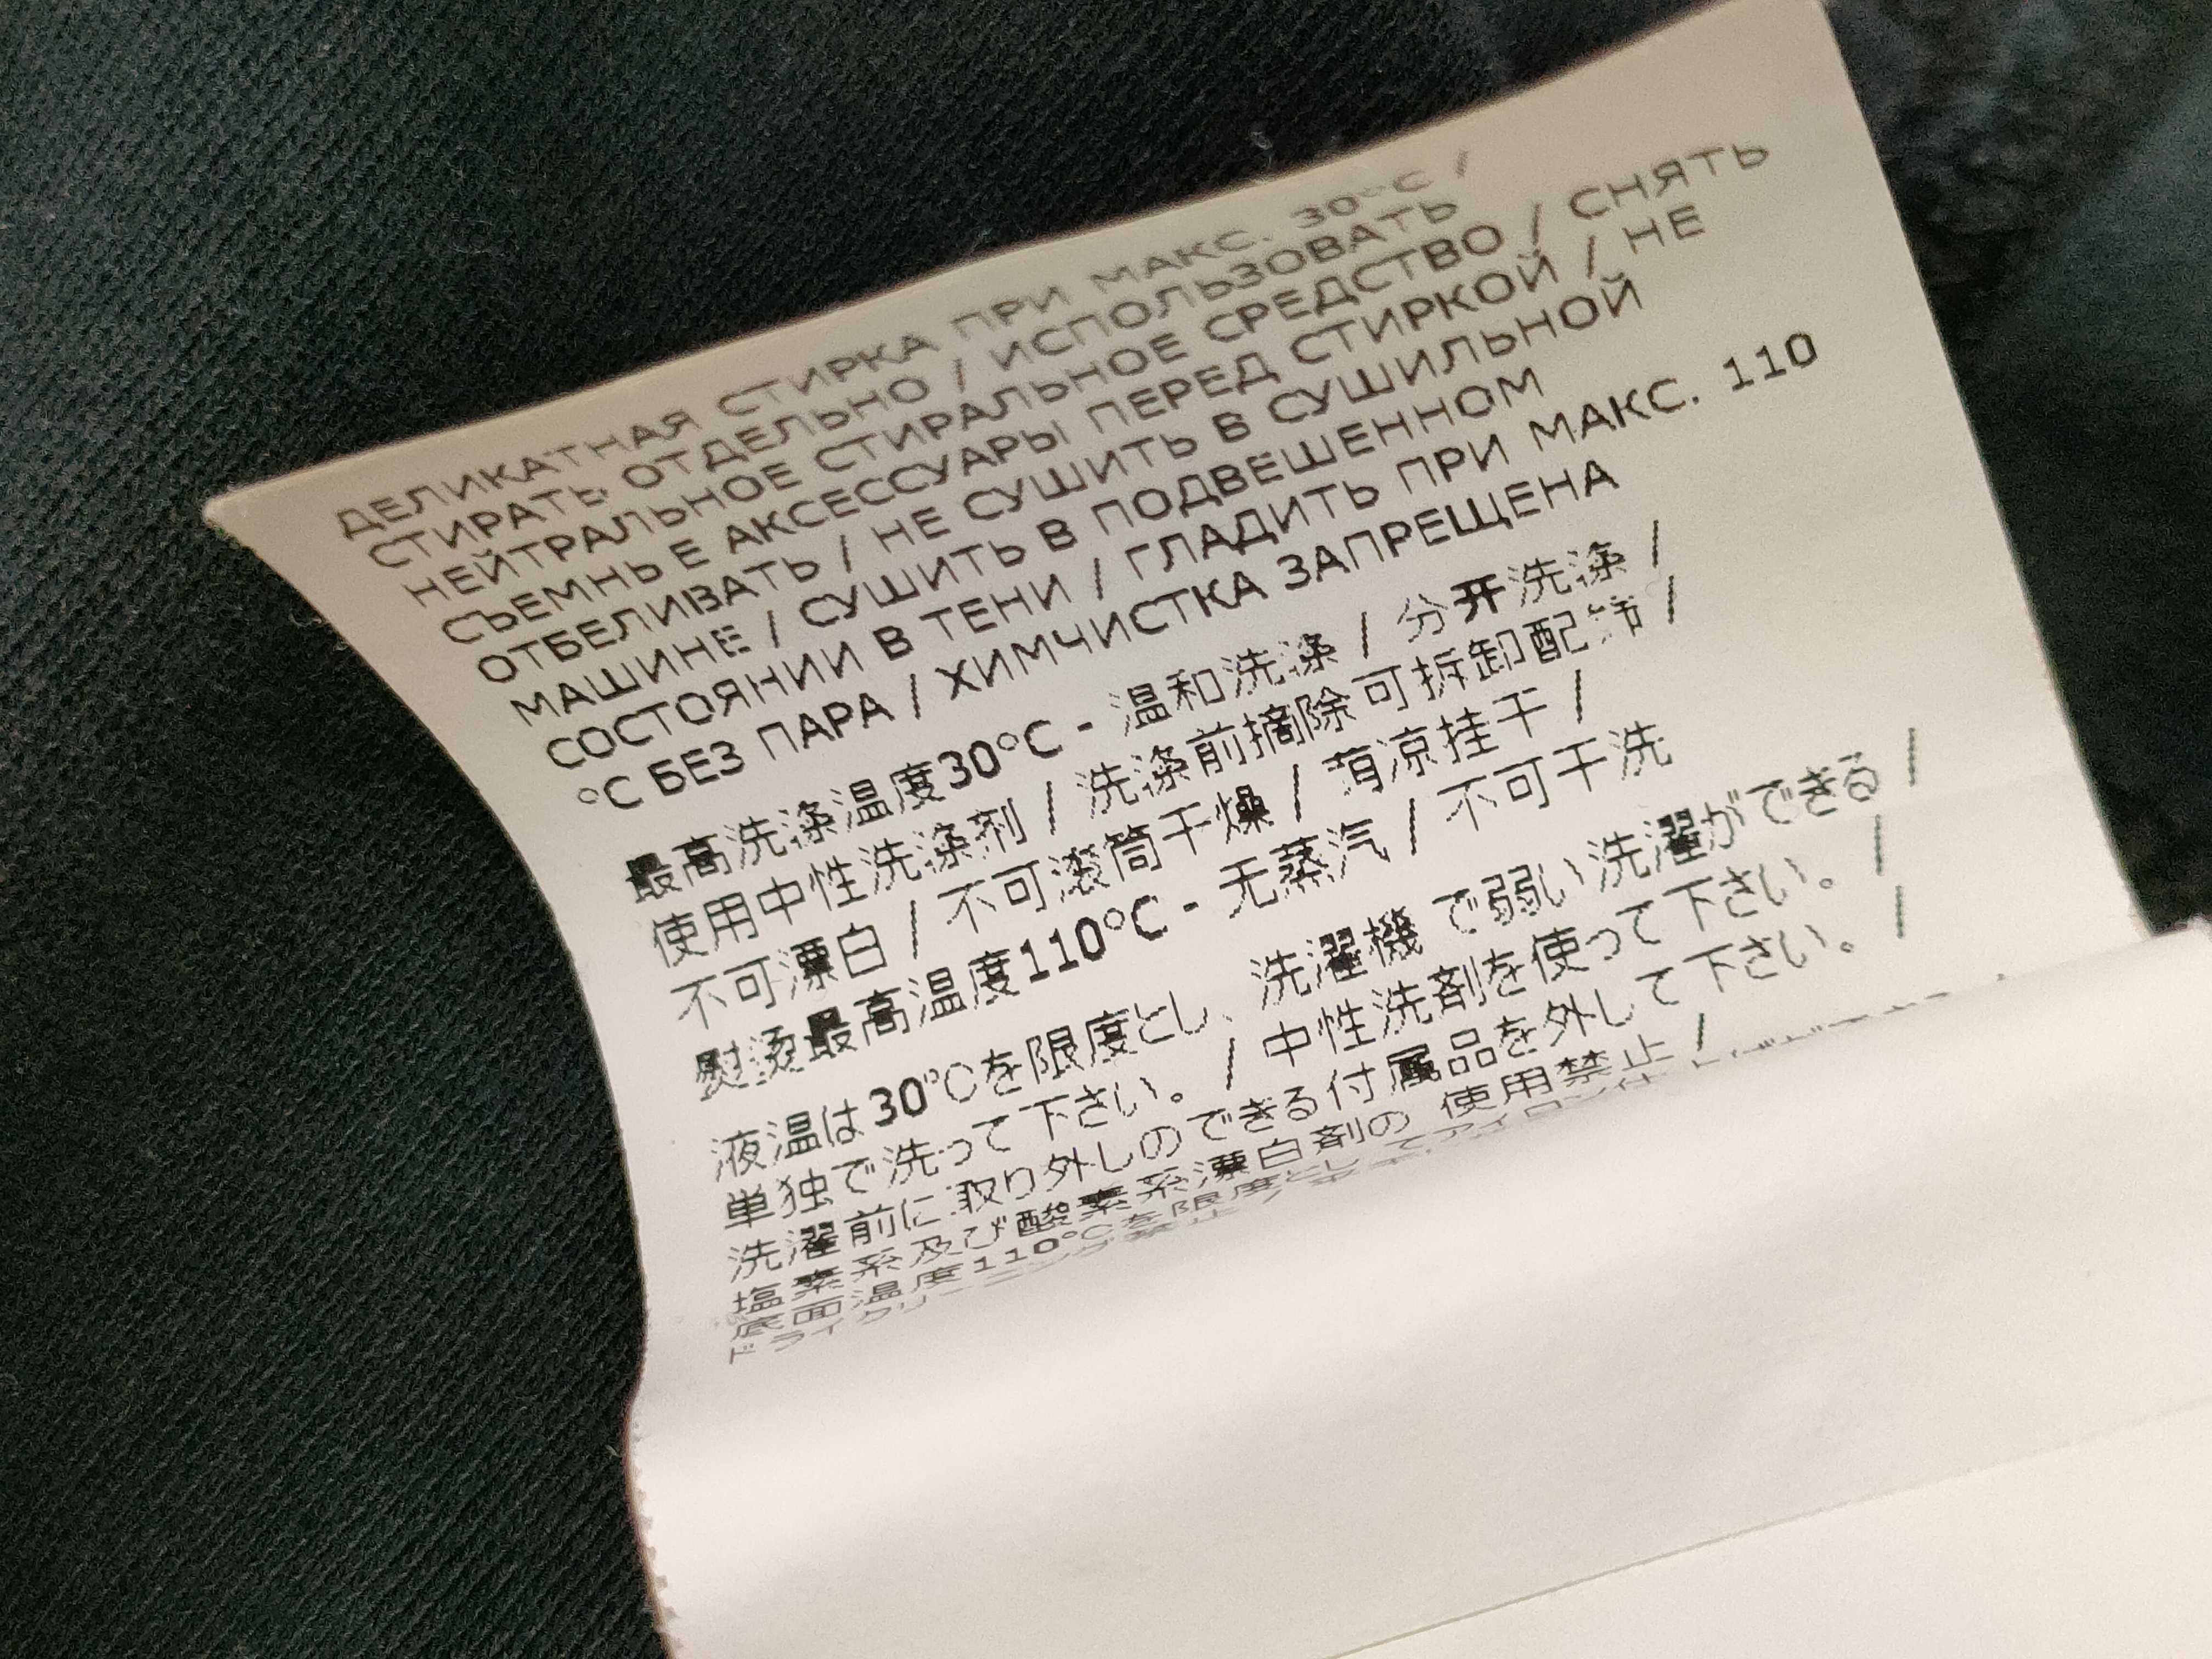 ДЕЛИКАТНАЯ СТИРКА ПРИ МАКС. 30°C /
СТИРАТЬ ОТДЕЛЬНО / ИСПОЛЬЗОВАТЬ
НЕЙТРАЛЬНОЕ СТИРАЛЬНОЕ СРЕДСТВО / СНЯТЬ
СЪЕМНЬ Е АКСЕССУАРЫ ПЕРЕД СТИРКОЙ / НЕ
ОТБЕЛИВАТЬ / НЕ СУШИТЬ В СУШИЛЬНОЙ
МАШИНЕ / СУШИТЬ В ПОДВЕШЕННОМ
СОСТОЯНИИ В ТЕНИ / ГЛАДИТЬ ПРИ МАКС. 110
°C БЕЗ ПАРА / ХИМЧИСТКА ЗАПРЕЩЕНА
最高洗涤温度30°C - 温和洗涤 / 分开洗涤 /
使用中性洗涤剂 / 洗涤前摘除可拆卸配饰 /
不可漂白 / 不可滚筒干燥 / 荫凉挂干 /
熨烫最高温度110°C - 无蒸汽 / 不可干洗
液温は30℃を限度とし、洗濯機で弱い洗濯ができる /
単独で洗って下さい。 / 中性洗剤を使って下さい。 /
洗濯前に取り外しのできる付属品を外して下さい。 /
塩素系及び酸素系漂白剤の使用禁止 /
底面温度110℃を限度としてアイロン仕
ドライクリーニング禁止 /